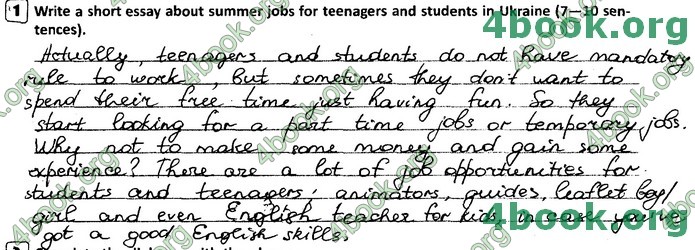 1 Write a short essay about summer jobs for teenagers and students in Ukraine (7—10 sen-
tences).
Actually, teenagers and students do not have mandatory
rule to work, but sometimes they don't want to
spend their free time just having fun. So they
start looking for a part time jobs or temporary jobs.
Why not to make some money and gain some
experience? There are a lot of job opportunities for
students and teenagers: animators, guides, leaflet boy/
girl and even English teacher for kids, in case you've
got a good English skills.
4book.org
4book.org
4book.org
4book.org
4book.org